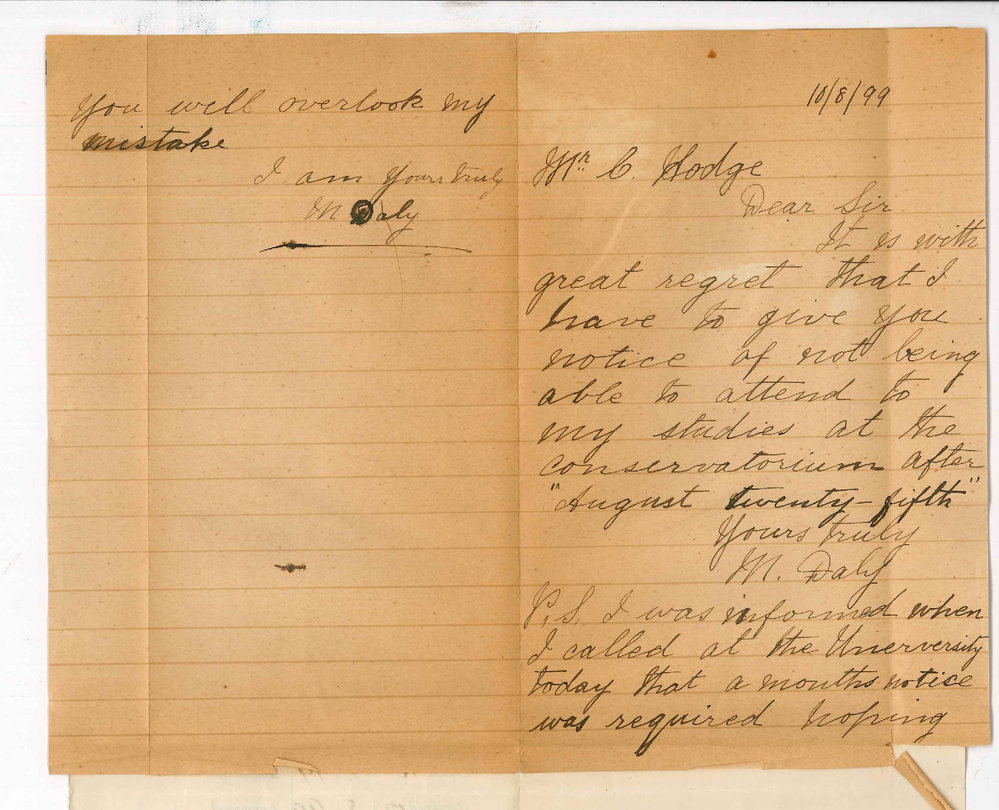 10/8/99
Mr. C. Hodge
Dear Sir
It is with
great regret that I
have to give you
notice of not being
able to attend to
my studies at the
conservatorium after
"August twenty-fifth"
Yours truly
M. Daly
P.S. I was informed when
I called at the Unerversity
today that a months notice
was required hoping
you will overlook my
mistake
I am Yours truly
M Daly